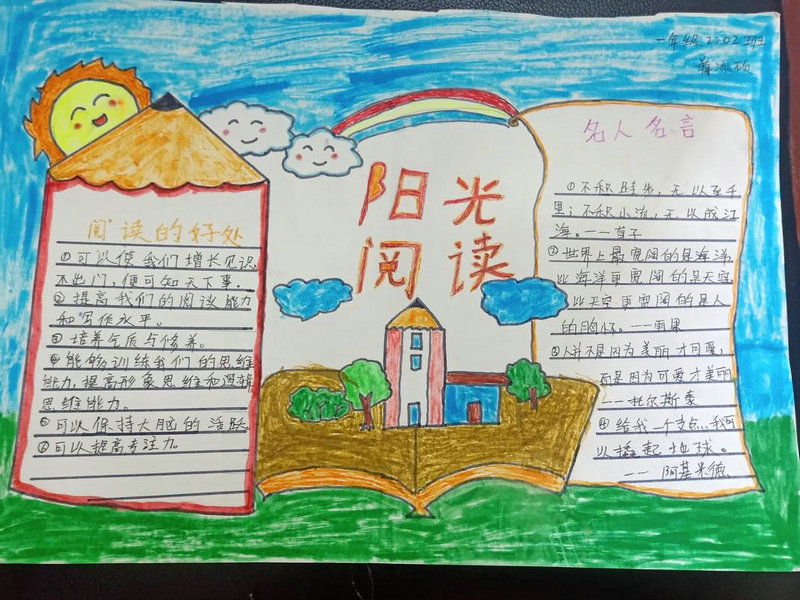 一年级2302班
阳光
阅读
阅读的好处
①可以使我们增长见识,
不出门,便可知天下事.
②提高我们的阅读能力
和写作水平。
③培养气质与修养。
④能够训练我们的思维
能力,提高形象思维和逻辑
思维能力。
⑤可以保持大脑的活跃
⑥可以提高专注力.
名人名言
①不积跬步,无以至千
里;不积小流,无以成江
海。——荀子
②世界上最宽阔的是海洋
比海洋更宽阔的是天空,
比天空更宽阔的是人
的胸怀。——雨果
③人并不是因为美丽才可爱,
而是因为可爱才美丽
——托尔斯泰
④给我一个支点,我可
以撬起地球。
——阿基米德